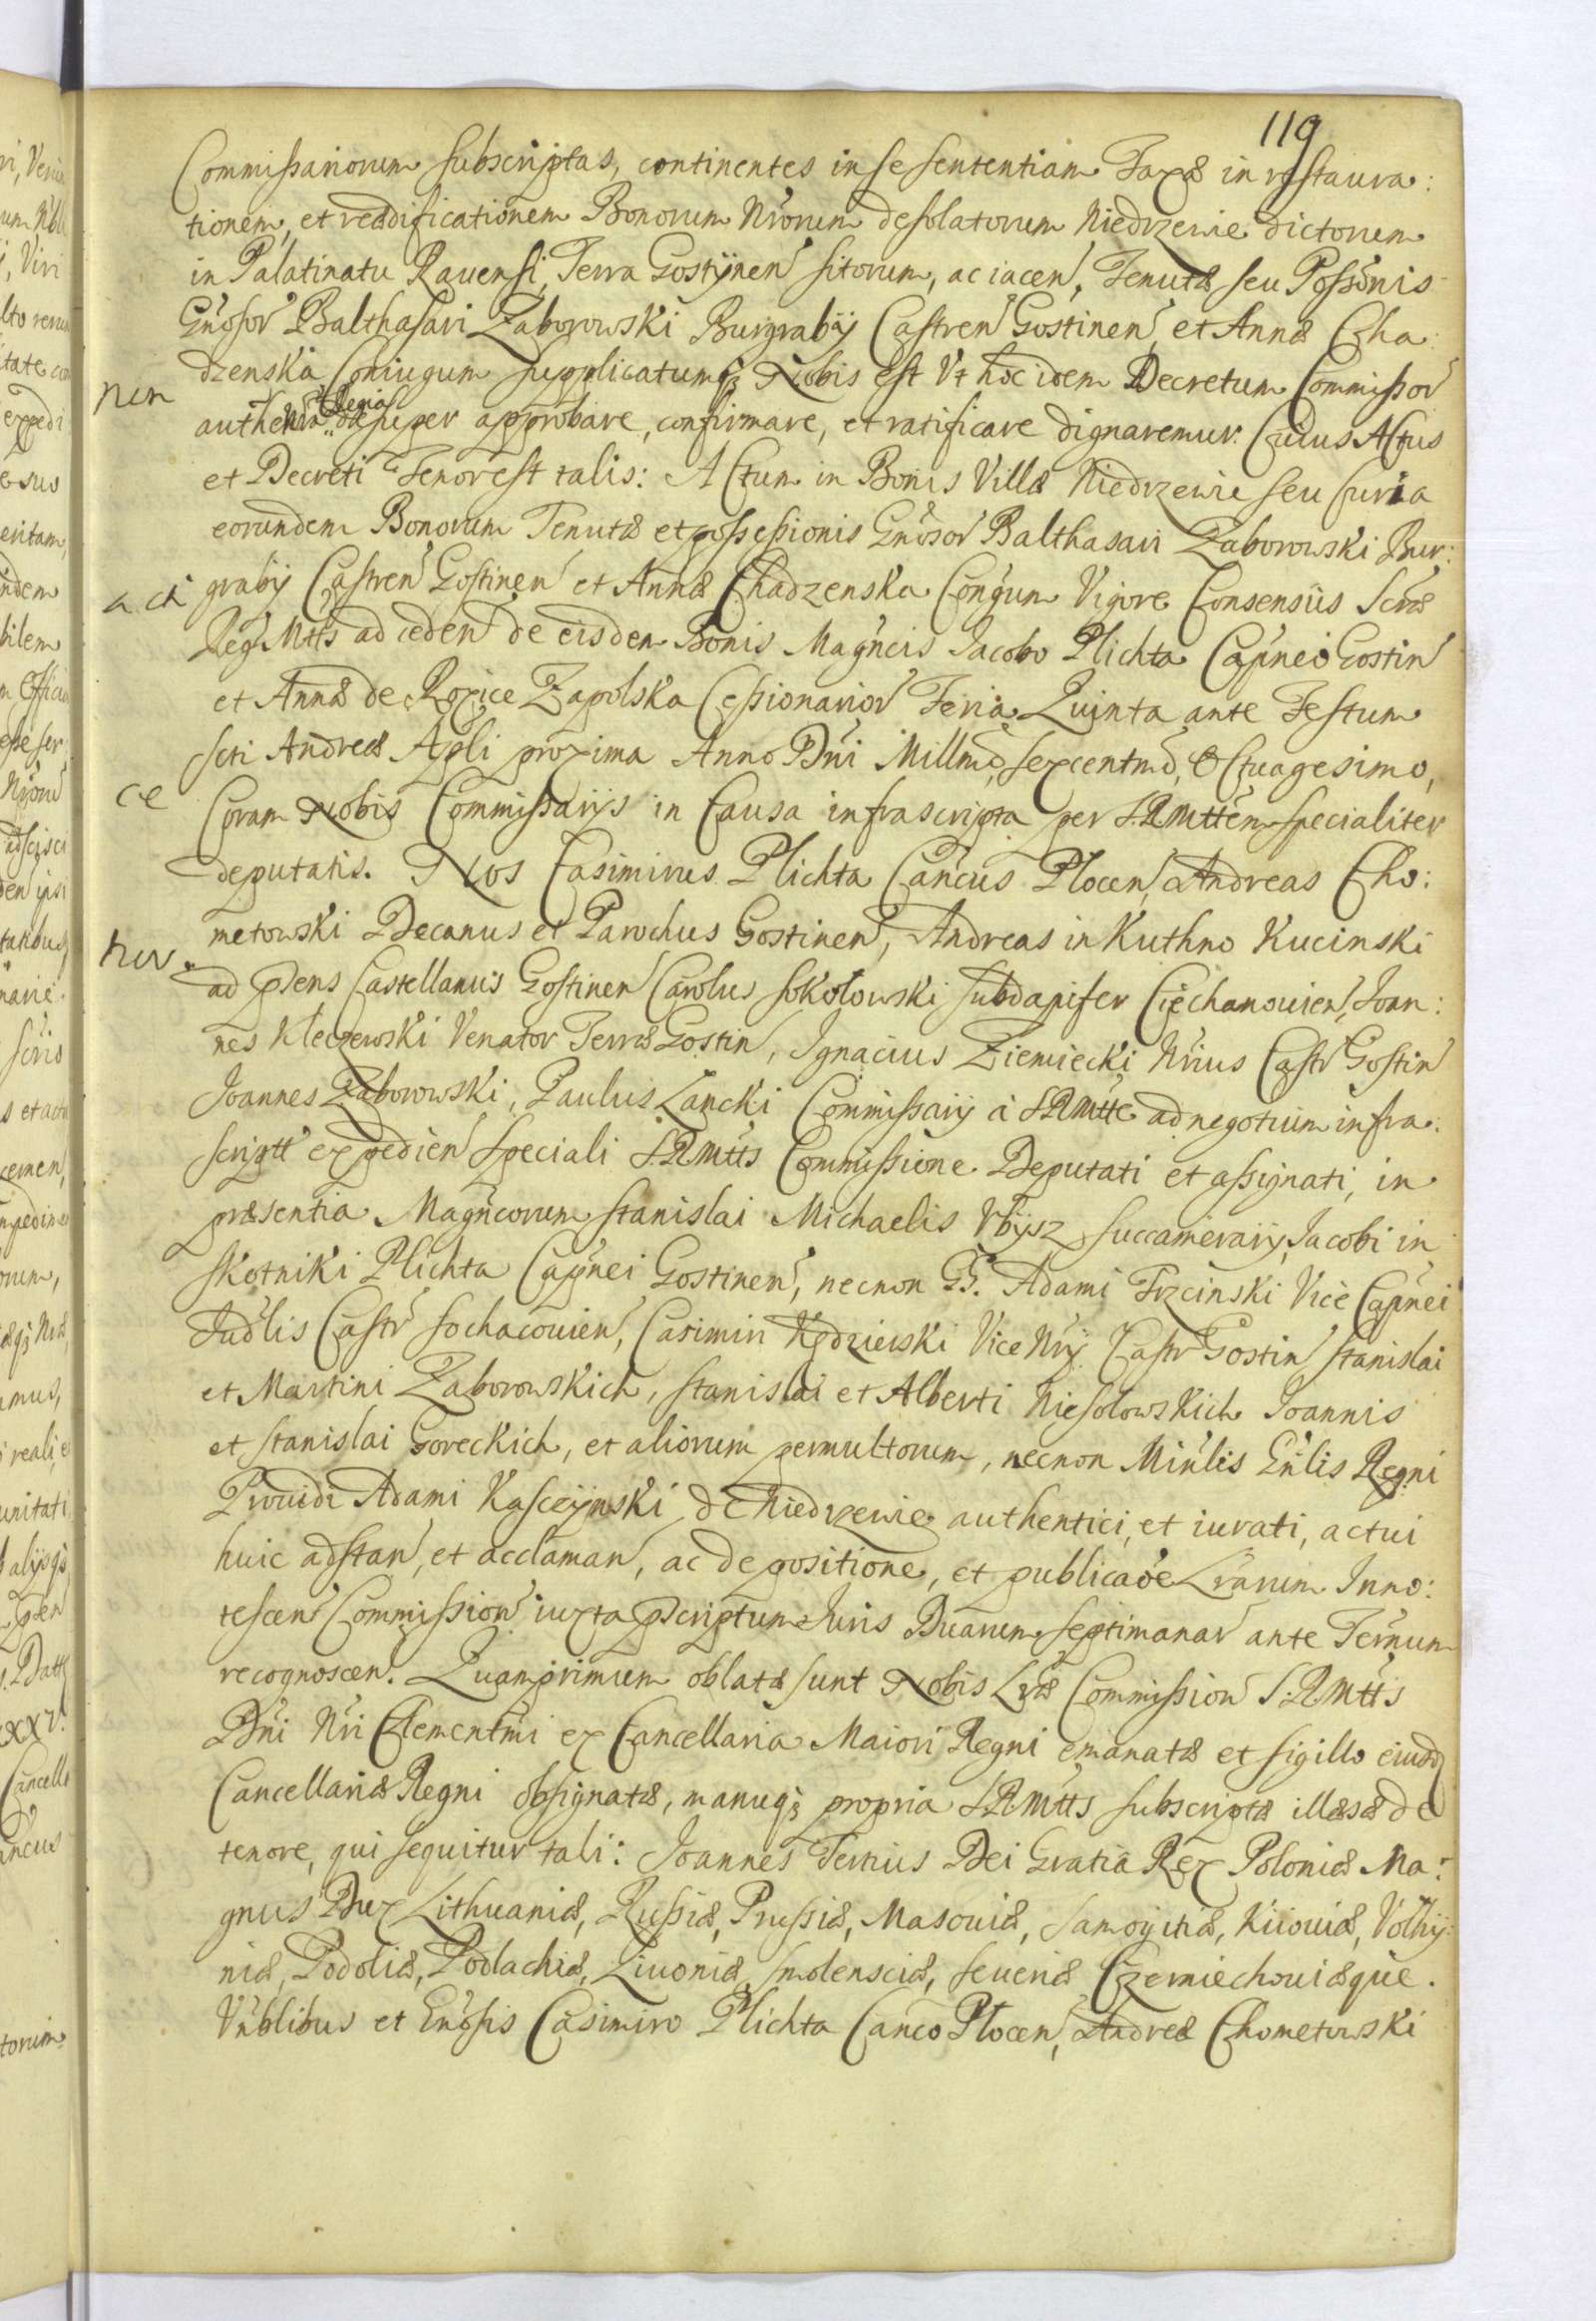 119
Commissariorum subscriptas, continentes in se sententiam Taxæ in restaura:
tionem, et reædificationem Bonorum Nrorum desolatorum Niedrzewie dictorum
in Palatinatu Rauensi, Terra Gostÿnen sitorum, ac iacen, Tenutæ seu Possonis
Gnosor Balthasari Zaborowski Burgrabÿ Castren Gostinen, et Annæ Cha:
dzenska Coniugum supplicatumq3 Nobis est Vt hoc idem Decretum Commissor
authen super approbare, confirmare, et ratificare dignaremur. Cuius Actus
et Decreti Tenor est talis: Actum in Bonis Villæ Niedrzewie seu Curia
eorundem Bonorum Tenutæ et possessionis Gnosor Balthasari Zaborowski Bur:
grabÿ Castren Gostinen et Annæ Chadzenska Congum Vigore Consensus Scræ
Reg Mttis ad ceden de eisdem Bonis Magncis Jacobo Plichta Capneo Gostin
et Annæ de Rozice Zapolska Cessionarior Feria Quinta ante Festum
Scti Andreæ Apli proxima Anno Dni Millmo, sexcentmo, Octuagesimo,
Coram Nobis Commissarijs in Causa infrascripta per S.R.Mttem specialiter
deputatis. Nos Casimirus Plichta Cancus Plocen, Andreas Cho:
metowski Decanus et Parochus Gostinen, Andreas in Kuthno Kucinski
ad pdens Castellanus Gostinen Carolus Sokolowski Subdapifer Ciechanouien, Joan:
nes Kleczewski Venator Terræ Gostin, Ignacius Ziemiecki Nrius Castr Gostin
Joannes Zaborowski, Paulus Lancki Commissarij à S.R.Mtte ad negotium infra:
scriptt expedien speciali S.R.Mttis Commissione Deputati et assignati, in
præsentia Magncorum Stanislai Michaelis Vbÿsz Succamerarij, Jacobi in
Skotniki Plichta Capnei Gostinen, necnon GG. Adami Trzcinski Vice Capnei
Judlis Castr Sochacouien, Casimiri Kędzierski Vice Nrij Castr Gostin Stanislai
et Martini Zaborowskich, Stanislai et Alberti Niesolowskich Joannis
et Stanislai Goreckich, et aliorum permultorum, necnon Minlis Gnlis Regni
Prouidi Adami Kasczÿnski de Niedrzewie authentici, et iurati, actui
huic adstan, et acclaman, ac de positione, et publicaoe Lrarum Inno:
tescen Commission iuxta pscriptum Juris Duarum septimanar ante Termum
recognoscen. Quamprimum oblatæ sunt Nobis Lræ Commission S.R.Mttis
Dni Nri Clementmi ex Cancellaria Maiori Regni emanatæ et sigillo eiusd
Cancellariæ Regni obsignatæ, manuq3 propria S.R.Mttis subscriptæ illæsæ de
tenore, qui sequitur tali: Joannes Tertius Dei Gratia Rex Poloniæ Ma:
gnus Dux Lithuaniæ, Russiæ, Prussiæ, Masouiæ, Samogitiæ, Kiiouiæ, Volhÿ:
niæ, Podoliæ, Podlachiæ, Liuoniæ, Smolensciæ, Seueriæ Czerniechouiæque.
Vnblibus et Gnosis Casimiro Plichta Canco Plocen, Andreæ Chometowski